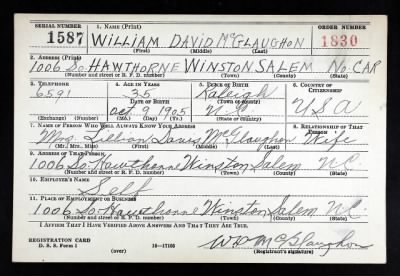 SERIAL NUMBER 1. NAME (Print) ORDER NUMBER
1587 WILLIAM DAVID McGLAUGHON 1830
(First) (Middle) (Last)
2. ADDRESS (Print)
1006 So HAWTHORNE WINSTON SALEM No. CAR
(Number and street or R. F. D. number) (Town) (County) (State)
3. TELEPHONE 4. AGE IN YEARS 5. PLACE OF BIRTH 6. COUNTRY OF CITIZENSHIP
6591 35 Raleigh
DATE OF BIRTH (Town or county)
Oct 9 1905 N.C. USA
(Exchange) (Number) (Mo.) (Day) (Yr.) (State or country)
7. NAME OF PERSON WHO WILL ALWAYS KNOW YOUR ADDRESS 8. RELATIONSHIP OF THAT PERSON
Mrs. Lillian Davis McGlaughon Wife
(Mr., Mrs., Miss) (First) (Middle) (Last)
9. ADDRESS OF THAT PERSON
1006 So. Hawthorne Winston Salem N.C.
(Number and street or R. F. D. number) (Town) (County) (State)
10. EMPLOYER'S NAME
Self
11. PLACE OF EMPLOYMENT OR BUSINESS
1006 So. Hawthorne Winston Salem N.C.
(Number and street or R. F. D. number) (Town) (County) (State)
I AFFIRM THAT I HAVE VERIFIED ABOVE ANSWERS AND THAT THEY ARE TRUE.
REGISTRATION CARD
D. S. S. Form 1 16—17105 WD McGlaughon
(over) (Registrant's signature)